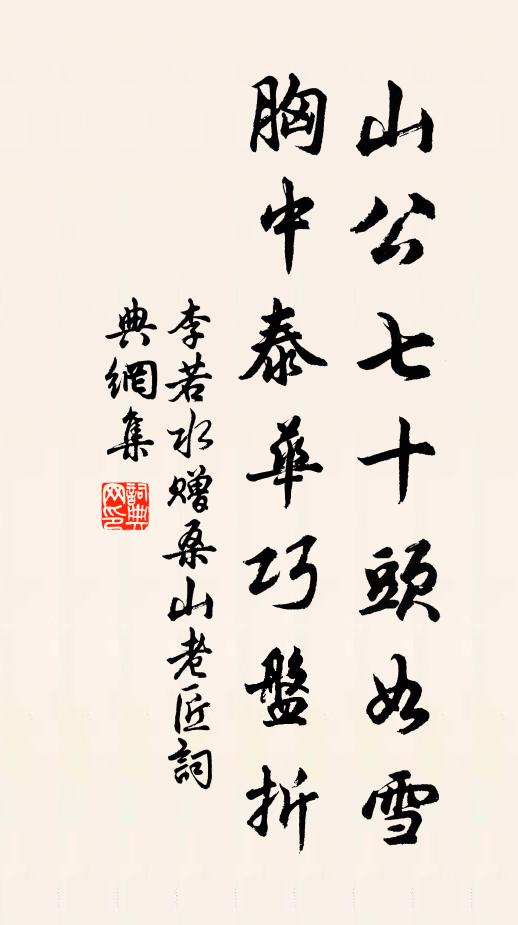 山公七十頭如雪
胸中泰華巧盤折
李若水贈桑山老匠詞
典網集
詞典网印